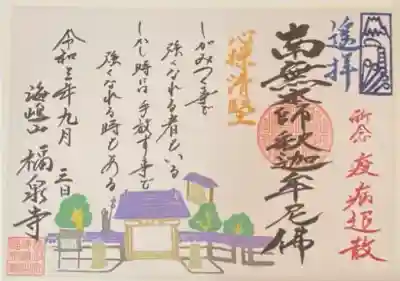 遙拝
祈念 疫病退散
南無本師釈迦牟尼佛
心操清堅
しがみつく事で
強くなれる者もいる
しかし時には手放す事で
強くなれる時もある
令和三年九月三日
海嶋山 福泉寺